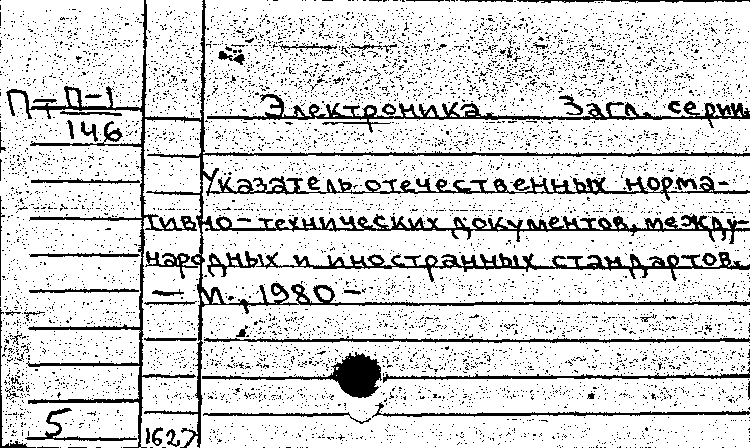 П-1
146
Электроника. Загл. серии.
Указатель отечественных норма-
тивно-технических документов, между-
народных и иностранных стандартов.
— М., 1980 —
5
1627